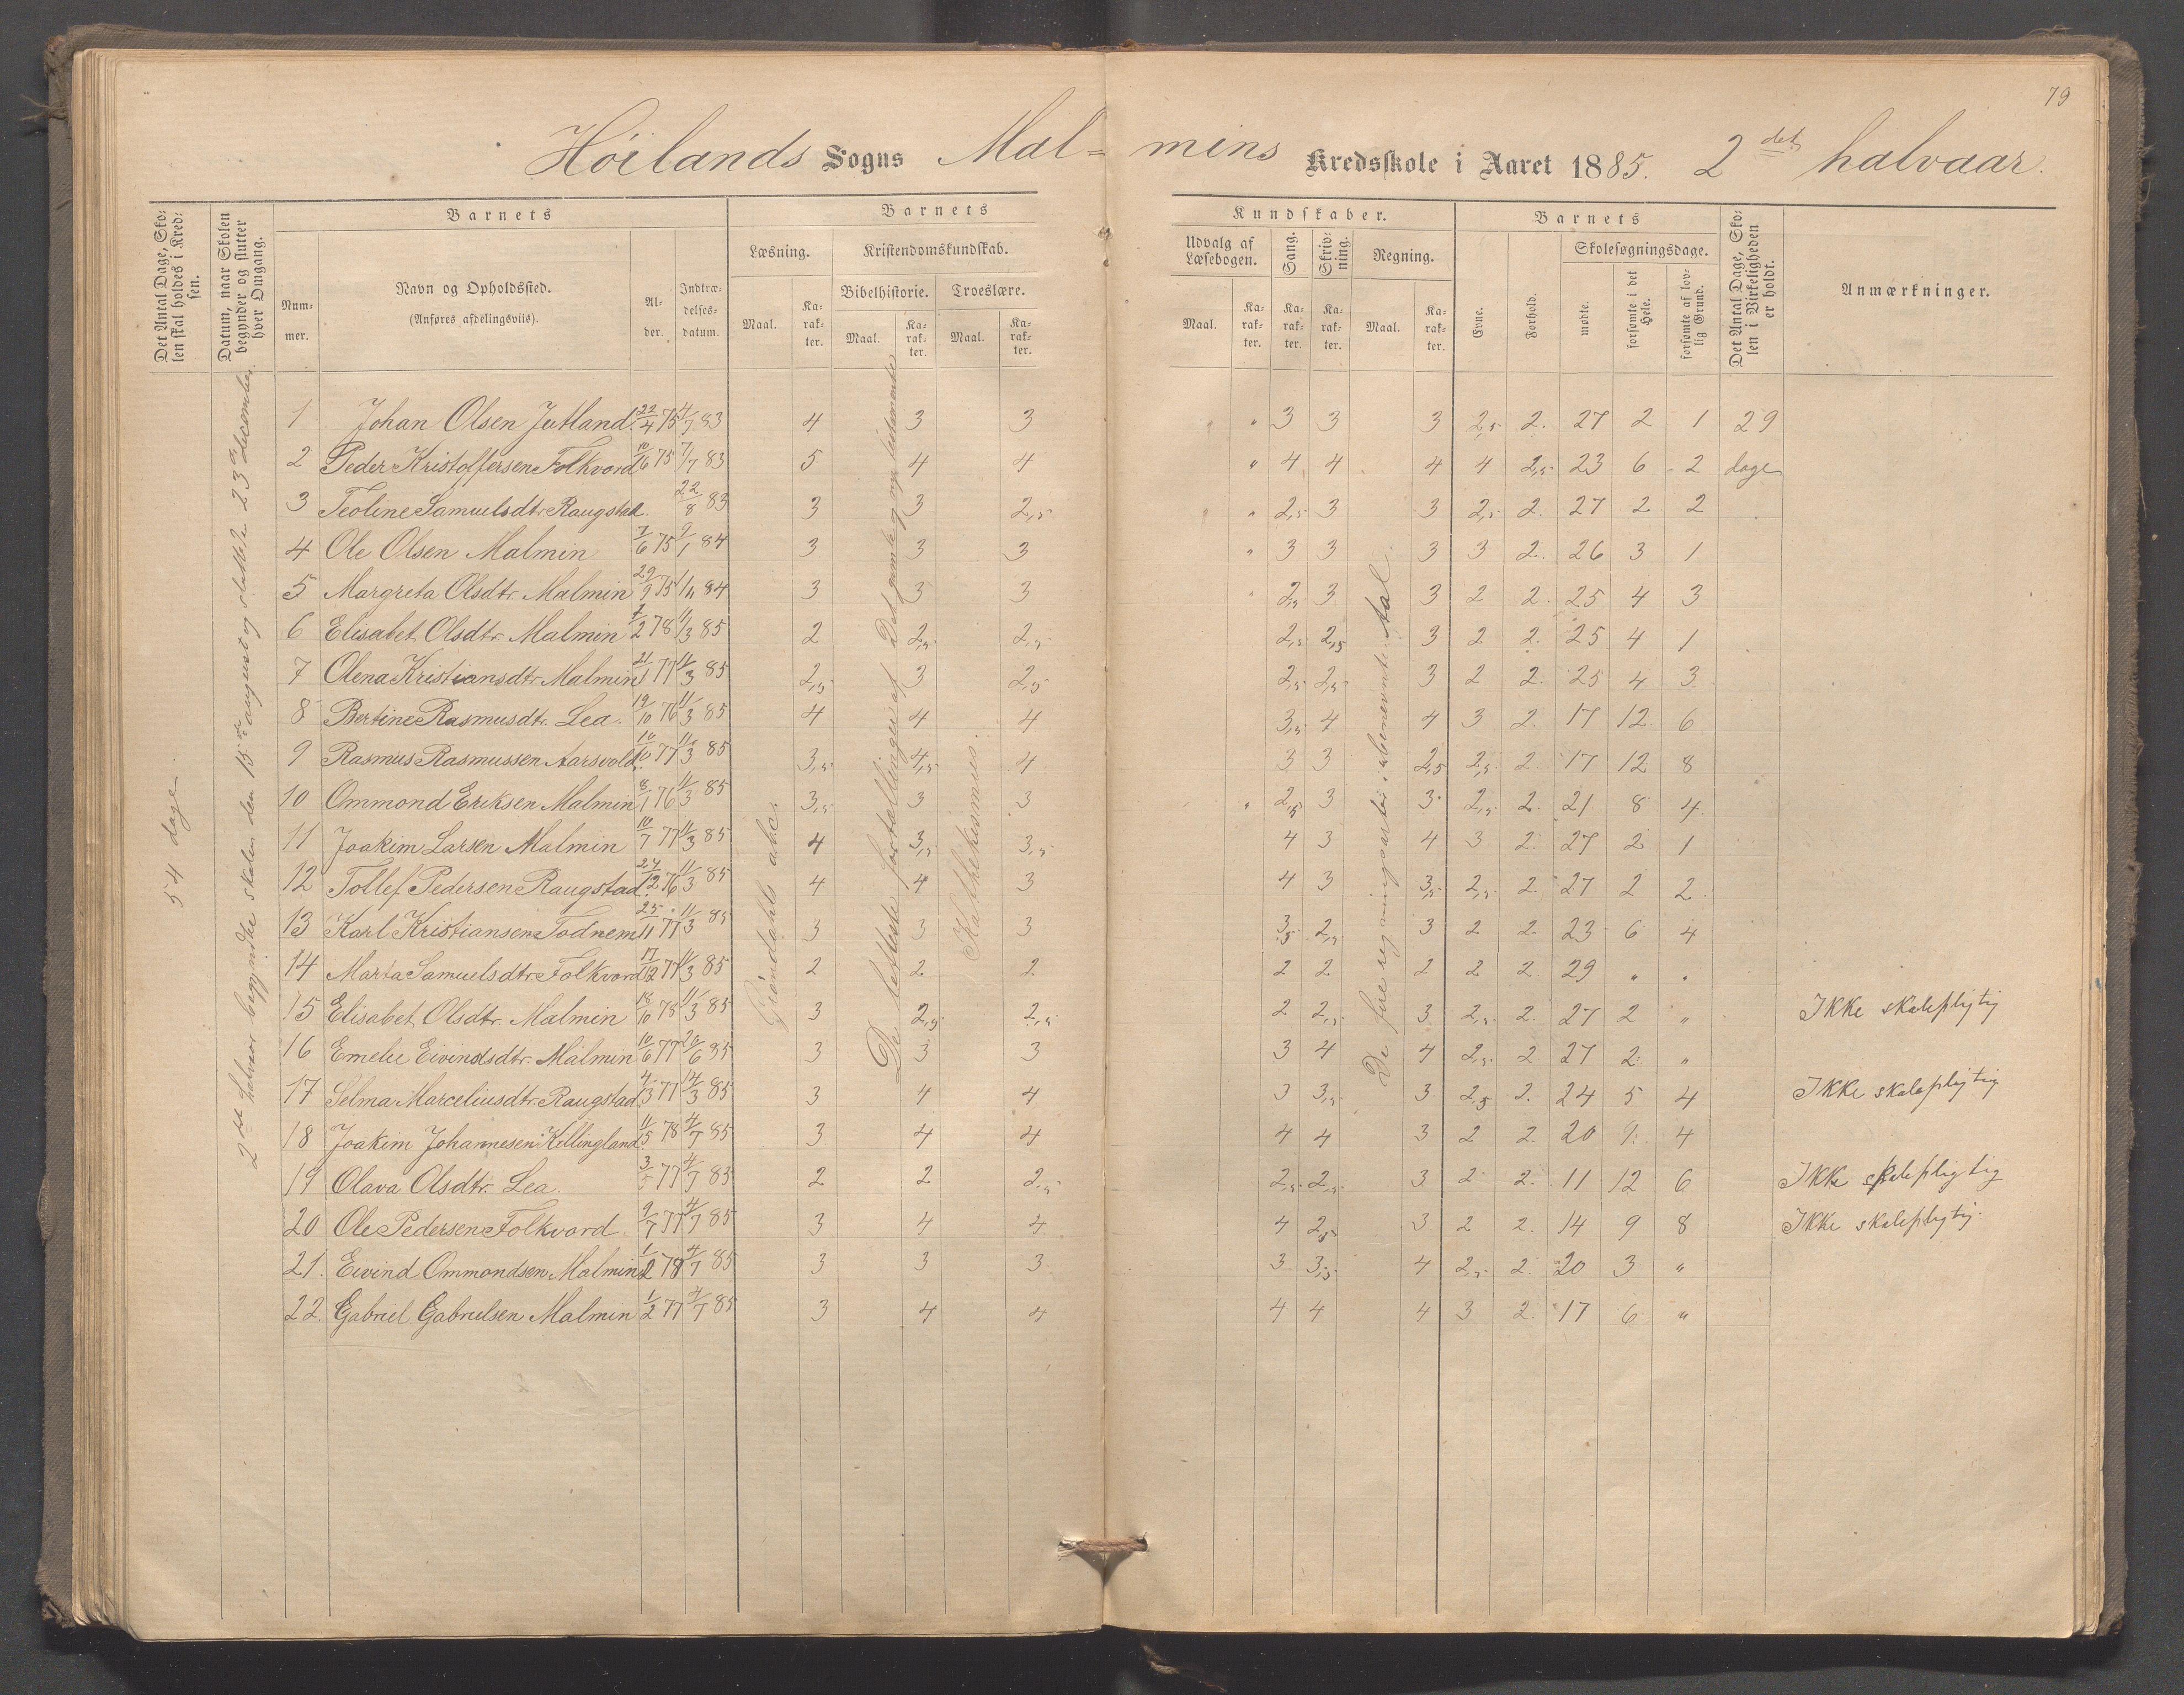 79
Høilands Sogns Mal= mins Kredsskole i Aaret 1885. 2det halvaar.
Det Antal Dage, Skolen skal holdes i Kredsen.
Datum, naar Skolen begynder og slutter hver Omgang.
Barnets
Nummer.
Navn og Opholdssted.
(Anføres afdelingsvis).
Alder.
Indtrædelsesdatum.
Barnets
Læsning.
Kristendomskundskab.
Bibelhistorie. Troeslære.
Maal. Karakter. Maal. Karakter. Maal. Karakter.
Kundskaber.
Udvalg af Læsebogen. Sang. Skrivning. Regning.
Maal. Karakter. Karakter. Karakter. Maal. Karakter.
Barnets
Evne. Forhold. Skolesøgningsdage.
mødte. forsømte i det Hele. forsømte af lovlig Grund.
Det Antal Dage, Skolen i Virkeligheden er holdt.
Anmærkninger.
54 dage.
2det halvaar begyndte skolen den 15de august og sluttede 23de december.
Grøndahls abc.
De letteste fortællinger af Det gamle og nye testamente
Katekismus.
De fire regningsarter i ubenevnte Tal.
1 Johan Olsen Jutland 22/4 75 4/7 83 4 3 3 " 3 3 3 2,5 2. 27 2 1 29
2 Peder Kristoffersen Folkvord 10/6 75 7/7 83 5 4 4 " 4 4 4 4 2,5 23 6 2 dage
3 Teoline Samuelsdtr. Raugstad. 22/8 83 3 3 2,5 " 2,5 3 3 2,5 2. 27 2 2
4 Ole Olsen Malmin 7/6 75 9/1 84 3 3 3 " 3 3 3 3 2. 26 3 1
5 Margreta Olsdtr. Malmin 29/9 75 1/11 84 3 3 3 " 2,5 3 3 2 2. 25 4 3
6 Elisabet Olsdtr. Malmin 7/2 78 11/3 85 2 2,5 2,5 2,5 2,5 3 2 2. 25 4 1
7 Olena Kristiansdtr. Malmin 21/1 77 11/3 85 2,5 3 2,5 2,5 2,5 3 2 2. 25 4 3
8 Bertine Rasmusdt. Lea. 19/10 76 11/3 85 4 4 4 3,5 4 4 3 2. 17 12 6
9 Rasmus Rasmussen Aarsvold 10/10 77 11/3 85 3,5 4,5 4 3 3 2,5 2,5 2. 17 12 8
10 Ommond Eriksen Malmin 8/1 76 11/3 85 3,5 3 3 " 2,5 3 3 2,5 2. 21 8 4
11 Joakim Larsen Malmin 10/7 77 11/3 85 4 3,5 3,5 4 3 4 3 2. 27 2 1
12 Tollef Pedersen Raugstad 27/12 76 11/3 85 4 4 3 4 3 3,5 2,5 2. 27 2 2
13 Karl Kristiansen Todnem 25/11 77 11/3 85 3 3 3 3,5 2,5 3 2 2. 23 6 4
14 Marta Samuelsdtr. Folkvord 17/12 77 11/3 85 2 2 2 2 2 2 2 2. 29 " "
15 Elisabet Olsdtr. Malmin 18/10 78 11/3 85 3 2,5 2,5 2 2,5 3 2,5 2. 27 2 " Ikke skolepligtig
16 Emelie Eivindsdtr. Malmin 10/6 77 20/6 85 3 3 3 3 4 4 2,5 2 27 2 "
17 Selma Marceliusdtr. Raugstad 4/3 77 14/3 85 3 4 4 3 3,5 3 2,5 2. 24 5 4 Ikke skolepligtig
18 Joakim Johannesen Kellingland 11/5 78 4/7 85 3 4 4 4 4 3 2 2. 20 9 4
19 Olava Olsdtr. Lea. 3/5 77 4/7 85 2 2 2,5 2,5 2,5 3 2 2. 11 12 6 Ikke skolepligtig
20 Ole Pedersen Folkvord 9/7 77 4/7 85 3 4 4 4 2,5 3 2 2. 14 9 8 Ikke skolepligtig
21. Eivind Ommondsen Malmin 1/2 78 4/7 85 3 3 3 3 3,5 4 2,5 2. 20 3 "
22. Gabriel Gabrielsen Malmin 1/2 77 4/7 85 3 4 4 4 4 4 3 2. 17 6 "